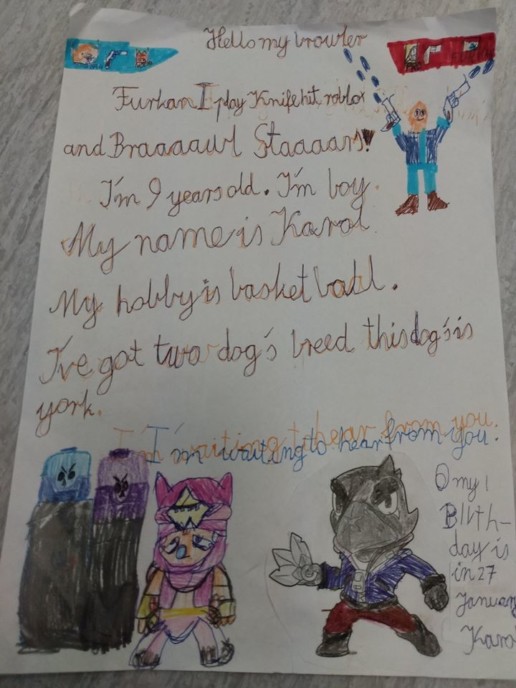 Hello my browler
Furkan I play Knife hit roblox
and Braaaawl Staaaars!
I'm 9 years old. I'm boy.
My name is Karol
My hobby is basket ball.
I've got two dog's breed this dog's is
york.
I'm writing to hear from you.
O my!
Birth-
day is
in 27
January
Karol